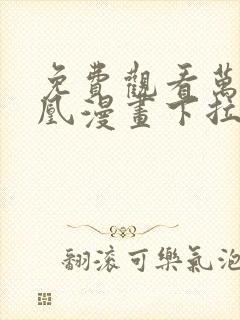 免費觀看萬
凰漫畫下拉
翻滾可樂氣泡